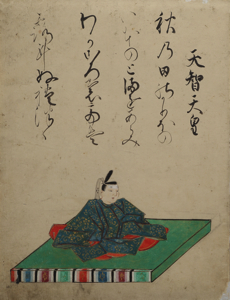 天智天皇
秋乃田のかりほの
いほのとまをあらみ
わかころも
ぬれつゝ